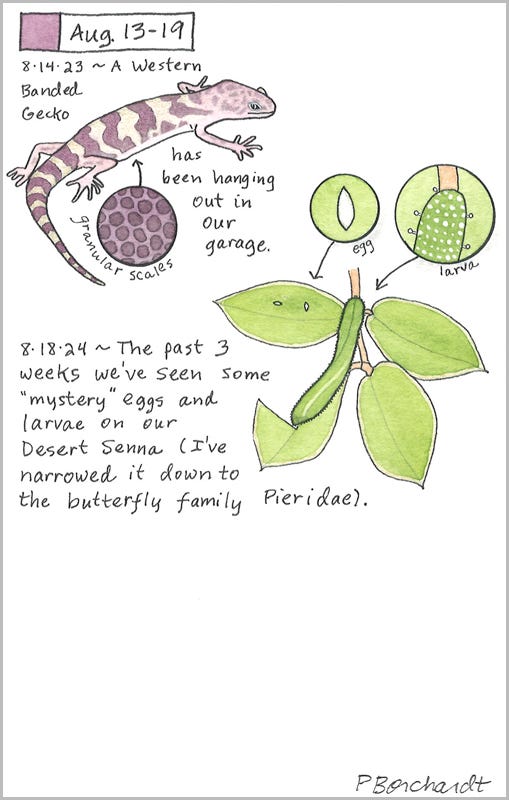 Aug. 13-19
8·14·23 ~ A Western
Banded
Gecko
has
been hanging
out in
our
garage.
granular scales
egg
larva
8·18·24 ~ The past 3
weeks we've seen some
"mystery" eggs and
larvae on our
Desert Senna (I've
narrowed it down to
the butterfly family Pieridae).
PBorchardt